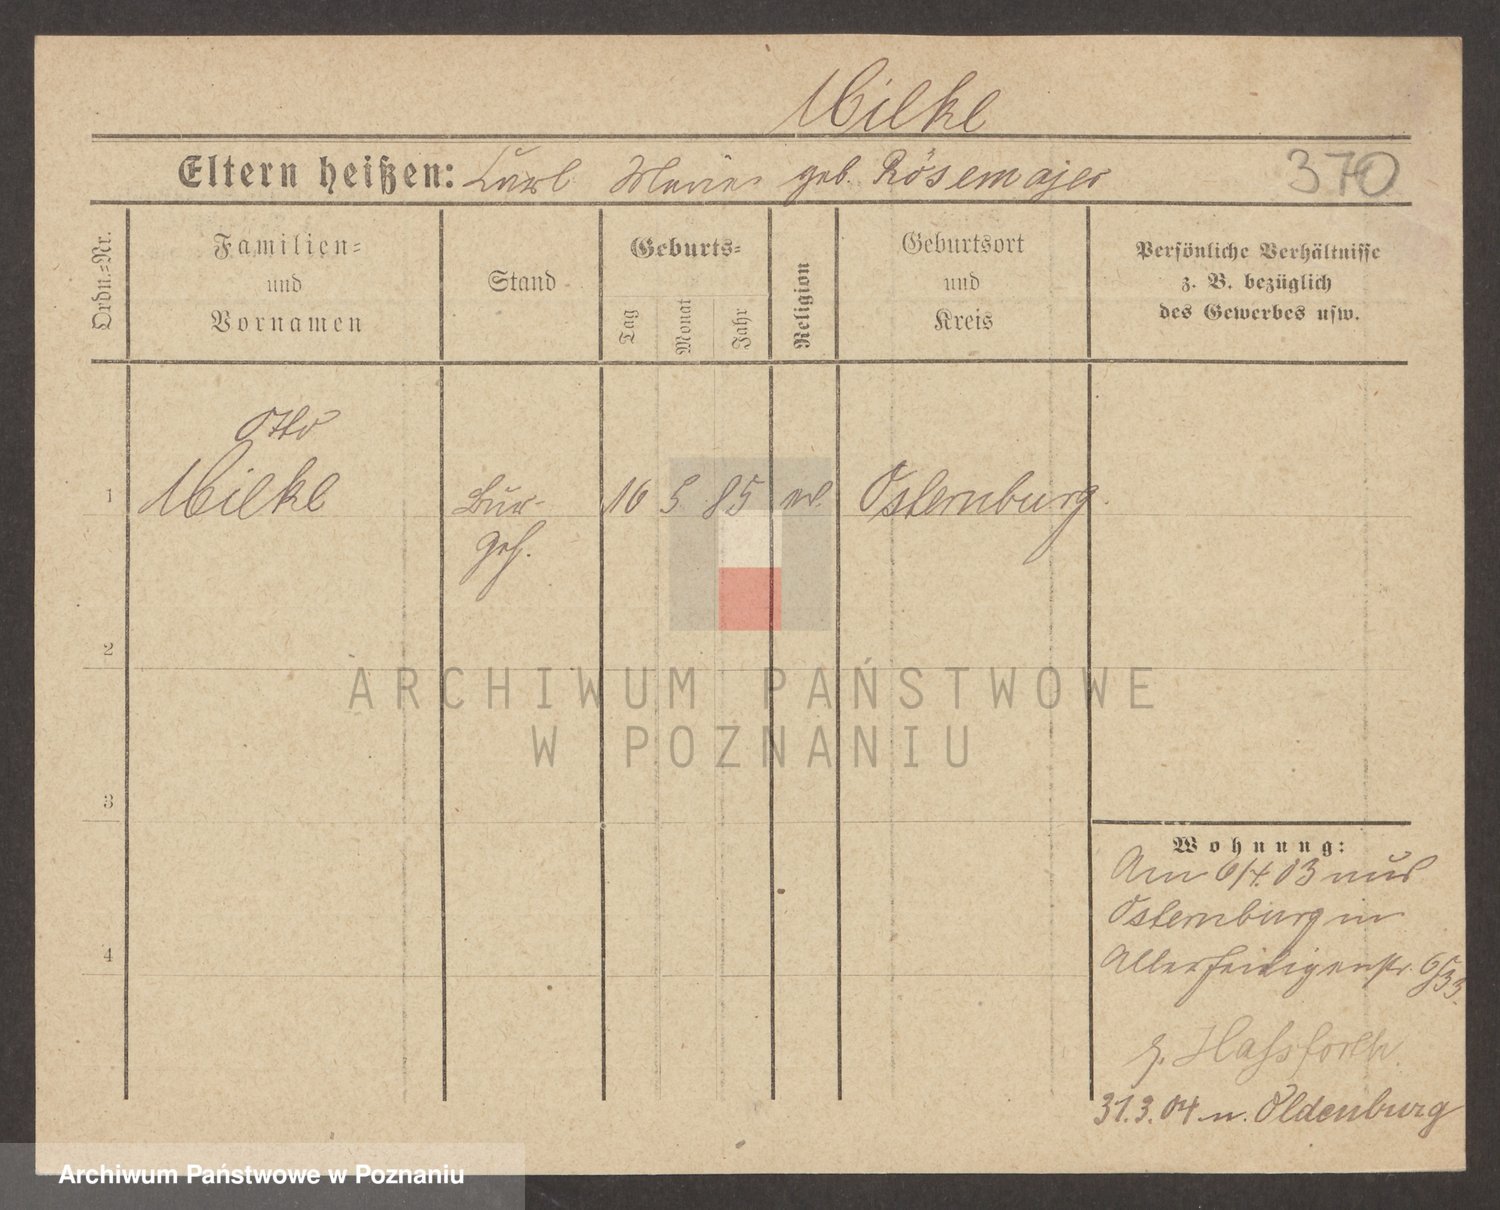 Milke
Eltern heißen: Carl Marie geb. Rösemajer 370
Ordn.-Nr.
Familien-
und
Vornamen
Stand
Geburts-
Tag
Monat
Jahr
Religion
Geburtsort
und
Kreis
Persönliche Verhältnisse
z. B. bezüglich
des Gewerbes usw.
Otto
1 Milke Bur- 16 5 85 ev. Osternburg.
geh.
2
3
4
Wohnung:
Am 6/4.03 aus
Osternburg in
Allerheiligenstr.
z. Hassforth.
31.3.04 n. Oldenburg
ARCHIWUM PAŃSTWOWE
W POZNANIU
Archiwum Państwowe w Poznaniu